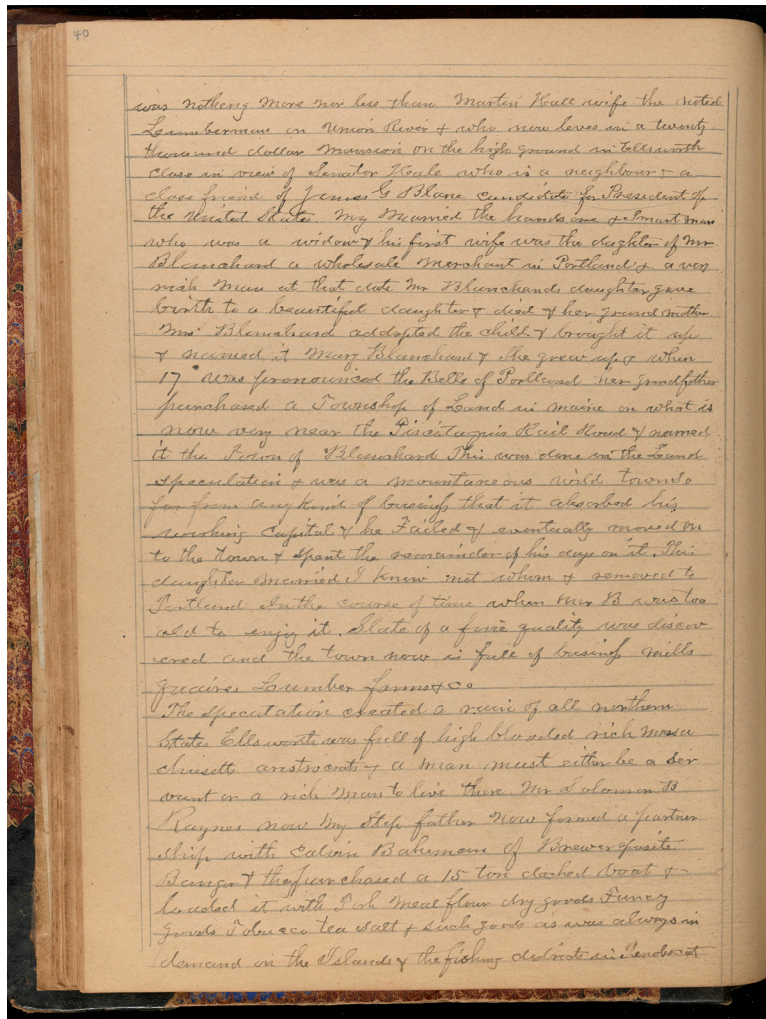 40
was notheng more nor less than Martin Hall wife the noted
Lumberman on Union River & who now leves in a twenty
thousand dollar mansion on the high ground in Ellsworth
close in view of Senator Heale who is a neighbour & a
close friend of James G Blane candidate for President of
the United States. My Married the handsome & Smart man
who was a widow & his first wife was the daghter of Mr
Blanchard a wholesale merchant in Portland & a very
rich man at that date Mr Blanchards daughter gave
birth to a beautiful daughter & died & her grand mother
Mrs Blanchard addopted the child & brought it up
& named it Mary Blanchard & She grew up & when
17 was pronounced the Belle of Portland her grandfather
purchased a Township of Land in maine on what is
now very near the Piscataquis Rail Road & named
it the Town of Blanchard This was done in the Land
speculation & was a mountaneous wild town so
far from any kind of business that it absorbed his
working Capital & he Failed & eventually moved on
to the town & Spent the remainder of his days on it. This
daughter married I know not whom & removed to
Portland In the course of time when Mr B was too
old to enjoy it. Slate of a fine quality was discov
ered and the town now is full of business mills
quaires Lumber farms & co
The speculation created a ruin of all northern
States Ellsworth was full of high blooded rich Massa
chusetts aristocrats & a man must either be a Ser
vant or a rich man to live there. Mr Solomon B
Raynes now my Step father now formed a partner
ship with Calvin Bakeman of Brewer oposite
Bangor & they purchased a 15 ton decked boat &
loaded it with Pork Meal flour dry goods Fancy
goods Tobacco tea salt & such goods as was always in
demand on the Islands & the fishing districts in Penobscot